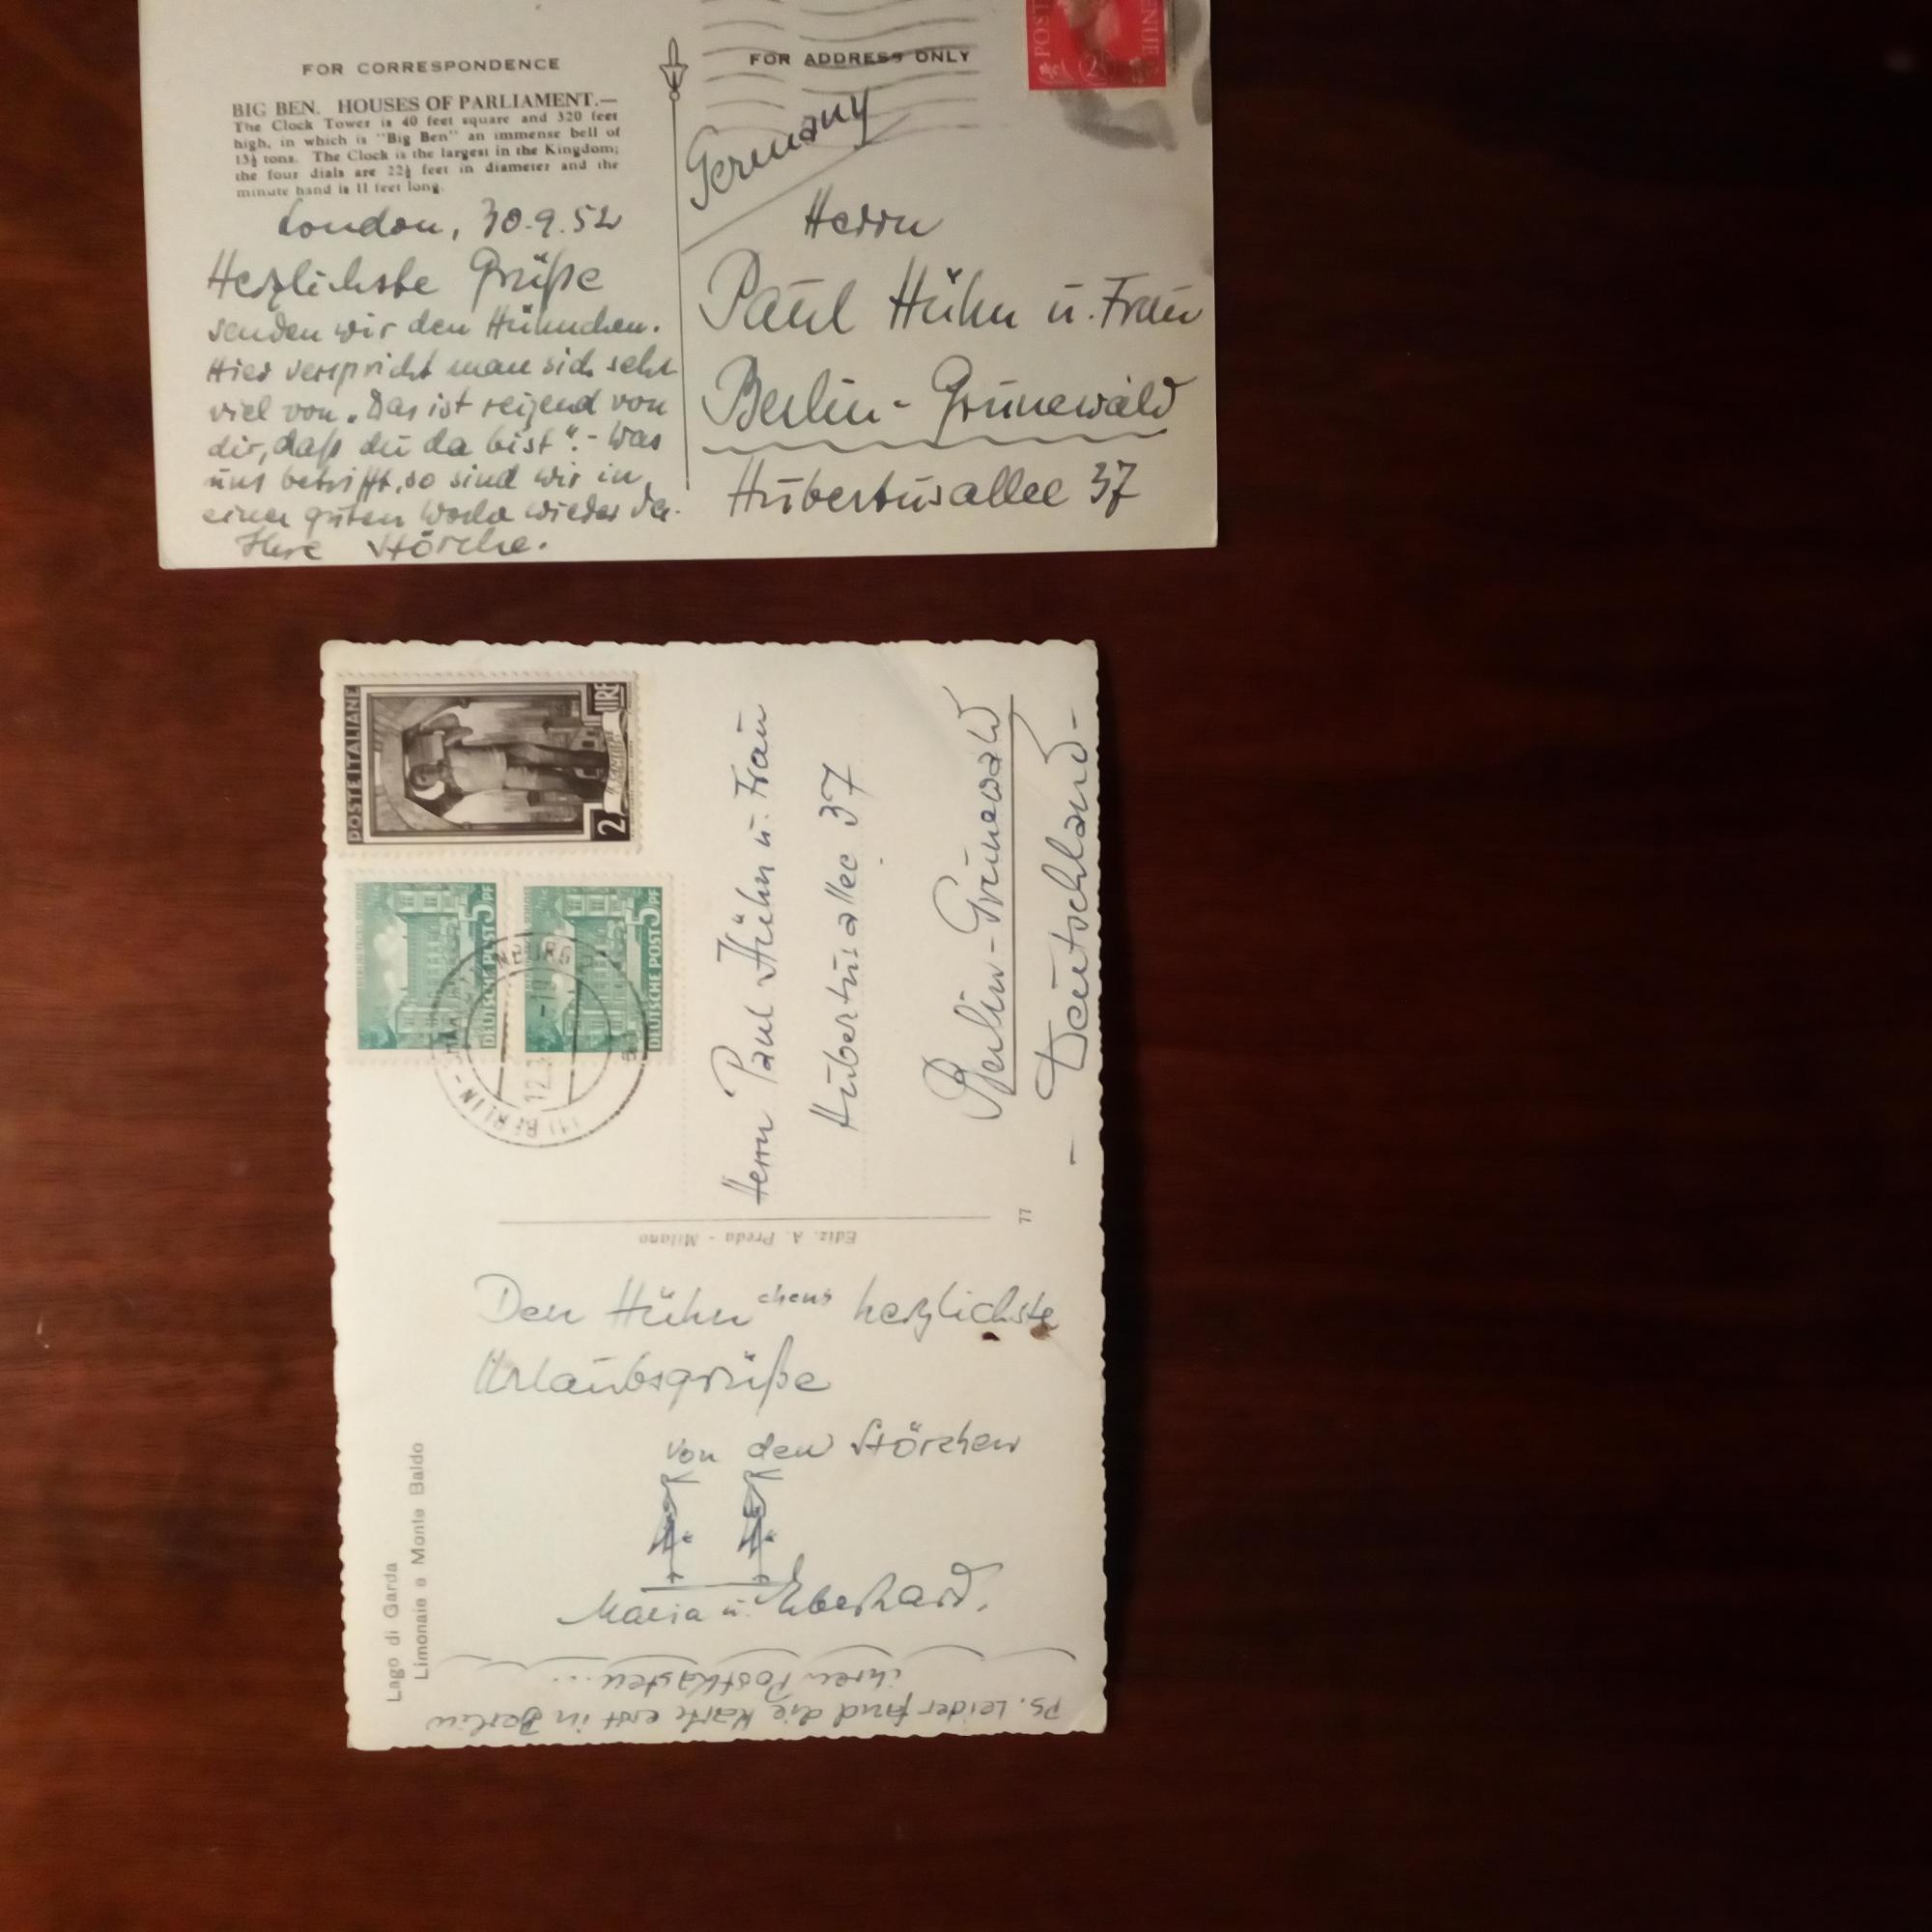 FOR CORRESPONDENCE
BIG BEN. HOUSES OF PARLIAMENT.—
The Clock Tower is 40 feet square and 320 feet
high, in which is "Big Ben" an immense bell of
13½ tons. The Clock is the largest in the Kingdom;
the four dials are 22½ feet in diameter and the
minute hand is 11 feet long.
London, 30.9.52
Herzlichste Grüße
senden wir den Hühnchen.
Hier verspricht man sich sehr
viel von „Das ist reizend von
dir, daß du da bist“. - Was
uns betrifft, so sind wir in
einer guten Woche wieder da.
Ihre Störche.
FOR ADDRESS ONLY
POST
ENUE
2½
Germany
Herrn
Paul Hühn u. Frau
Berlin-Grunewald
Hubertusallee 37
POSTE ITALIANE
2 LIRE
DEUTSCHE POST 5 PF
DEUTSCHE POST 5 PF
BERLIN-
NBURG
12.
Herrn Paul Hühn u. Frau
Hubertusallee 37
Berlin-Grunewald
- Deutschland -
77
Ediz. A. Preda - Milano
Den Hühnchens herzlichste
Urlaubsgrüße
von den Störchen
Maria u. Eberhard.
Lago di Garda
Limonaie e Monte Baldo
Ps. Leider fand die Karte erst in Berlin
ihren Postkasten...